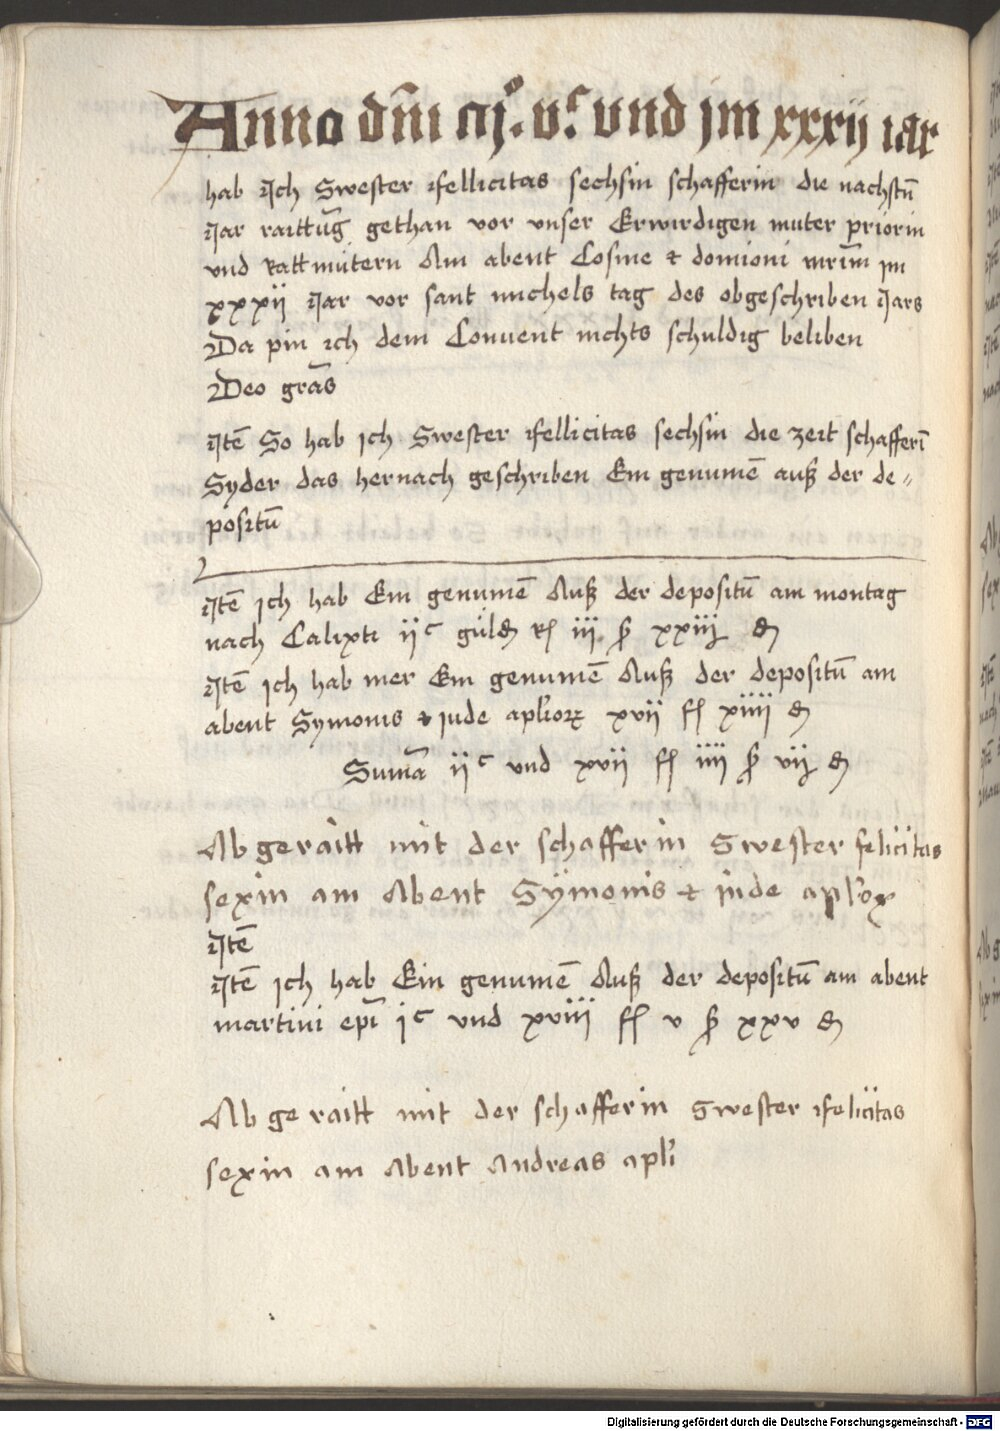 Anno dm̄ m̊. vᶜ. und jm xxxij iar
hab Ich Swester ffellicitas sechsin schafferin die nachstn̄
Jar raittūg gethan vor vnser Erwirdigen muter priorin
vnd Ratt mütern Am abent Cosme & domioni mrīm jm
xxxij Jar vor sant michels tag des obgeschriben Jars
Da pin ich dem Conuent nichts schuldig beliben
Deo grās
Jtē So hab ich Swester ffellicitas sechsin die zeit schafferī
Syder das hernach geschriben Ein genumē auß der de„
positū
Jtē Ich hab Ein genumē Auß der depositū am montag
nach Calixti ijᶜ güld₰ Rſ iij ẞ xxiij ₰
Jtē ich hab mer Ein genumē Auß der depositū am
abent Symonis & iude aplōꝝ xvij fſ xiiij ₰
Sum̄a ijᶜ vnd xvij fſ iiij ẞ vij ₰
Abgeraitt mit der schafferin Swester felicitas
sexin am Abent Sÿmonis & iude aplōꝝ
Jtē
Jtē ich hab Ein genumē Auß der depositū am abent
martini epī jᶜ vnd xviij fſ v ẞ xxv ₰
Abgeraitt mit der schafferin Swester ffelicitas
sexin am Abent Andreas apli
Digitalisierung gefördert durch die Deutsche Forschungsgemeinschaft - DFG